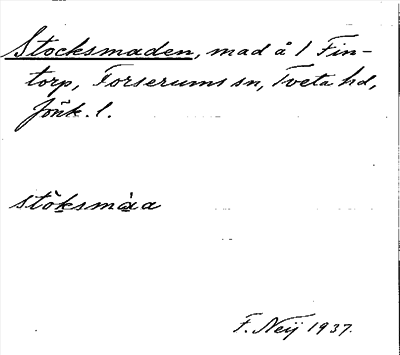 Stocksmaden, mad å 1 Fin-
torp, Forserums sn, Tveta hd,
Jönk. l.
stòksmàa
F. Neij 1937.